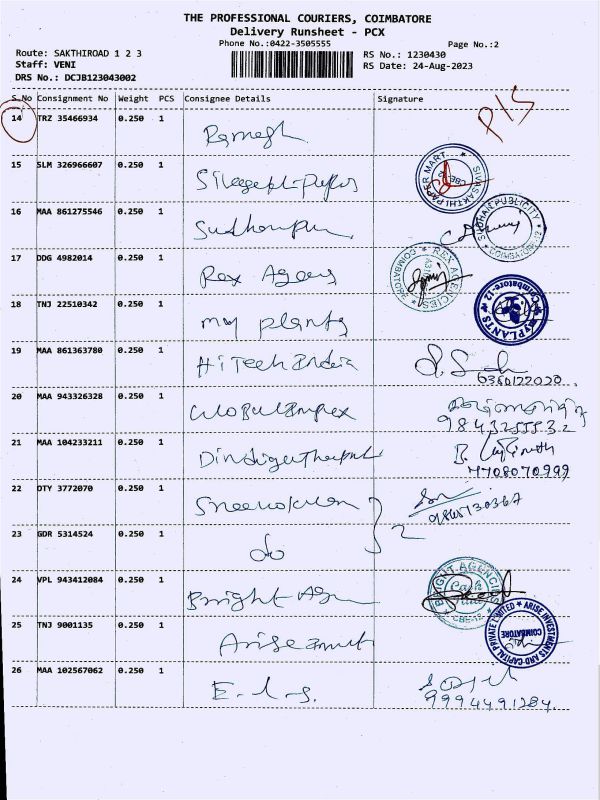 THE PROFESSIONAL COURIERS, COIMBATORE
Delivery Runsheet - PCX
Phone No.:0422-3505555
Page No.:2
Route: SAKTHIROAD 1 2 3
Staff: VENI
DRS No.: DCJB123043002
RS No.: 1230430
RS Date: 24-Aug-2023
S.No Consignment No Weight PCS Consignee Details Signature
14 TRZ 35466934 0.250 1 Ramesh
15 SLM 326966607 0.250 1
SIVASAKTHI PAPER MART CBE-12
16 MAA 861275546 0.250 1
SUDHAN PUBLICITY COIMBATORE-12
17 DDG 4982014 0.250 1 Rex Agency
REX AGENCIES COIMBATORE
18 TNJ 22510342 0.250 1 my plants
MY PLANTS Coimbatore-12
19 MAA 861363780 0.250 1 HiTech India
6380122020
20 MAA 943326328 0.250 1 Global Impex
9843255532
21 MAA 104233211 0.250 1
7708070999
22 DTY 3772070 0.250 1
2
23 GDR 5314524 0.250 1 do
24 VPL 943412084 0.250 1 Bright Agn
BRIGHT AGENCIES CBE-12
25 TNJ 9001135 0.250 1 Arise
ARISE INVESTMENTS AND CAPITAL PRIVATE LIMITED COIMBATORE
26 MAA 102567062 0.250 1 E.l.s.
9994491284